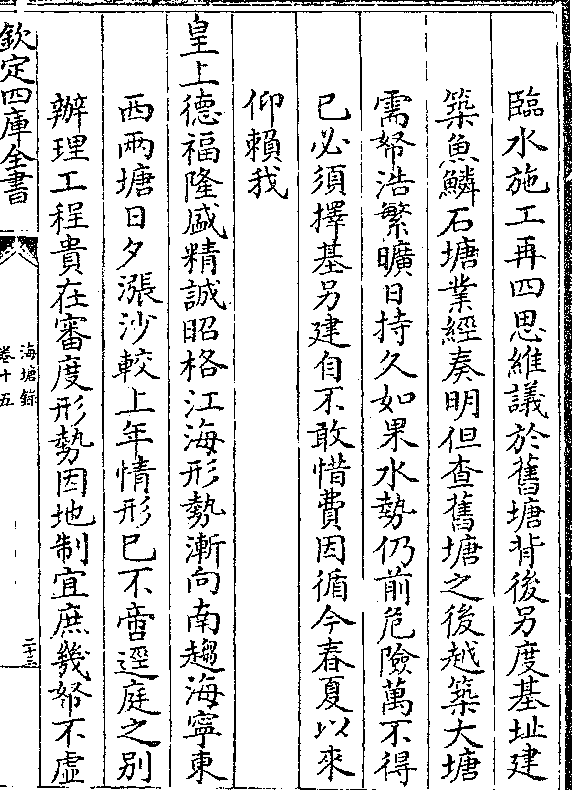 臨水施工再四思維議於舊塘背後另度基址建
築魚鱗石塘業經奏明但查舊塘之後越築大塘
需帑浩繁曠日持久如果水勢仍前危險萬不得
已必須擇基另建自不敢惜費因循今春夏以來
仰賴我
皇上德福隆盛精誠昭格江海形勢漸向南趨海寧東
西兩塘日夕漲沙較上年情形已不啻逕庭之別
辦理工程貴在審度形勢因地制宜庶幾帑不虛
欽定四庫全書
海塘錄
卷十五
二十三